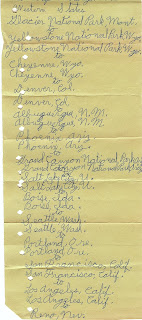 Western State
Glacier National Park Mont.
to
Yellowstone National Park Wyo.
Yellowstone National Park Wyo.
to
Cheyenne, Wyo.
Cheyenne, Wyo.
to
Denver, Col.
Denver, Col.
to
Albuquerque, N.M.
Albuquerque, N.M.
to
Phoenix, Ariz.
Phoenix, Ariz.
to
Grand Canyon National Park
Grand Canyon National Park
to
Salt City, U.
Salt City, U.
to
Boise, Ida.
Boise, Ida.
to
Seattle, Wash.
Seattle, Wash.
to
Portland, Ore.
Portland, Ore.
to
San Francisco, Calif.
San Francisco, Calif.
to
Los Angeles, Calif.
Los Angeles, Calif.
to
Reno, Nev.